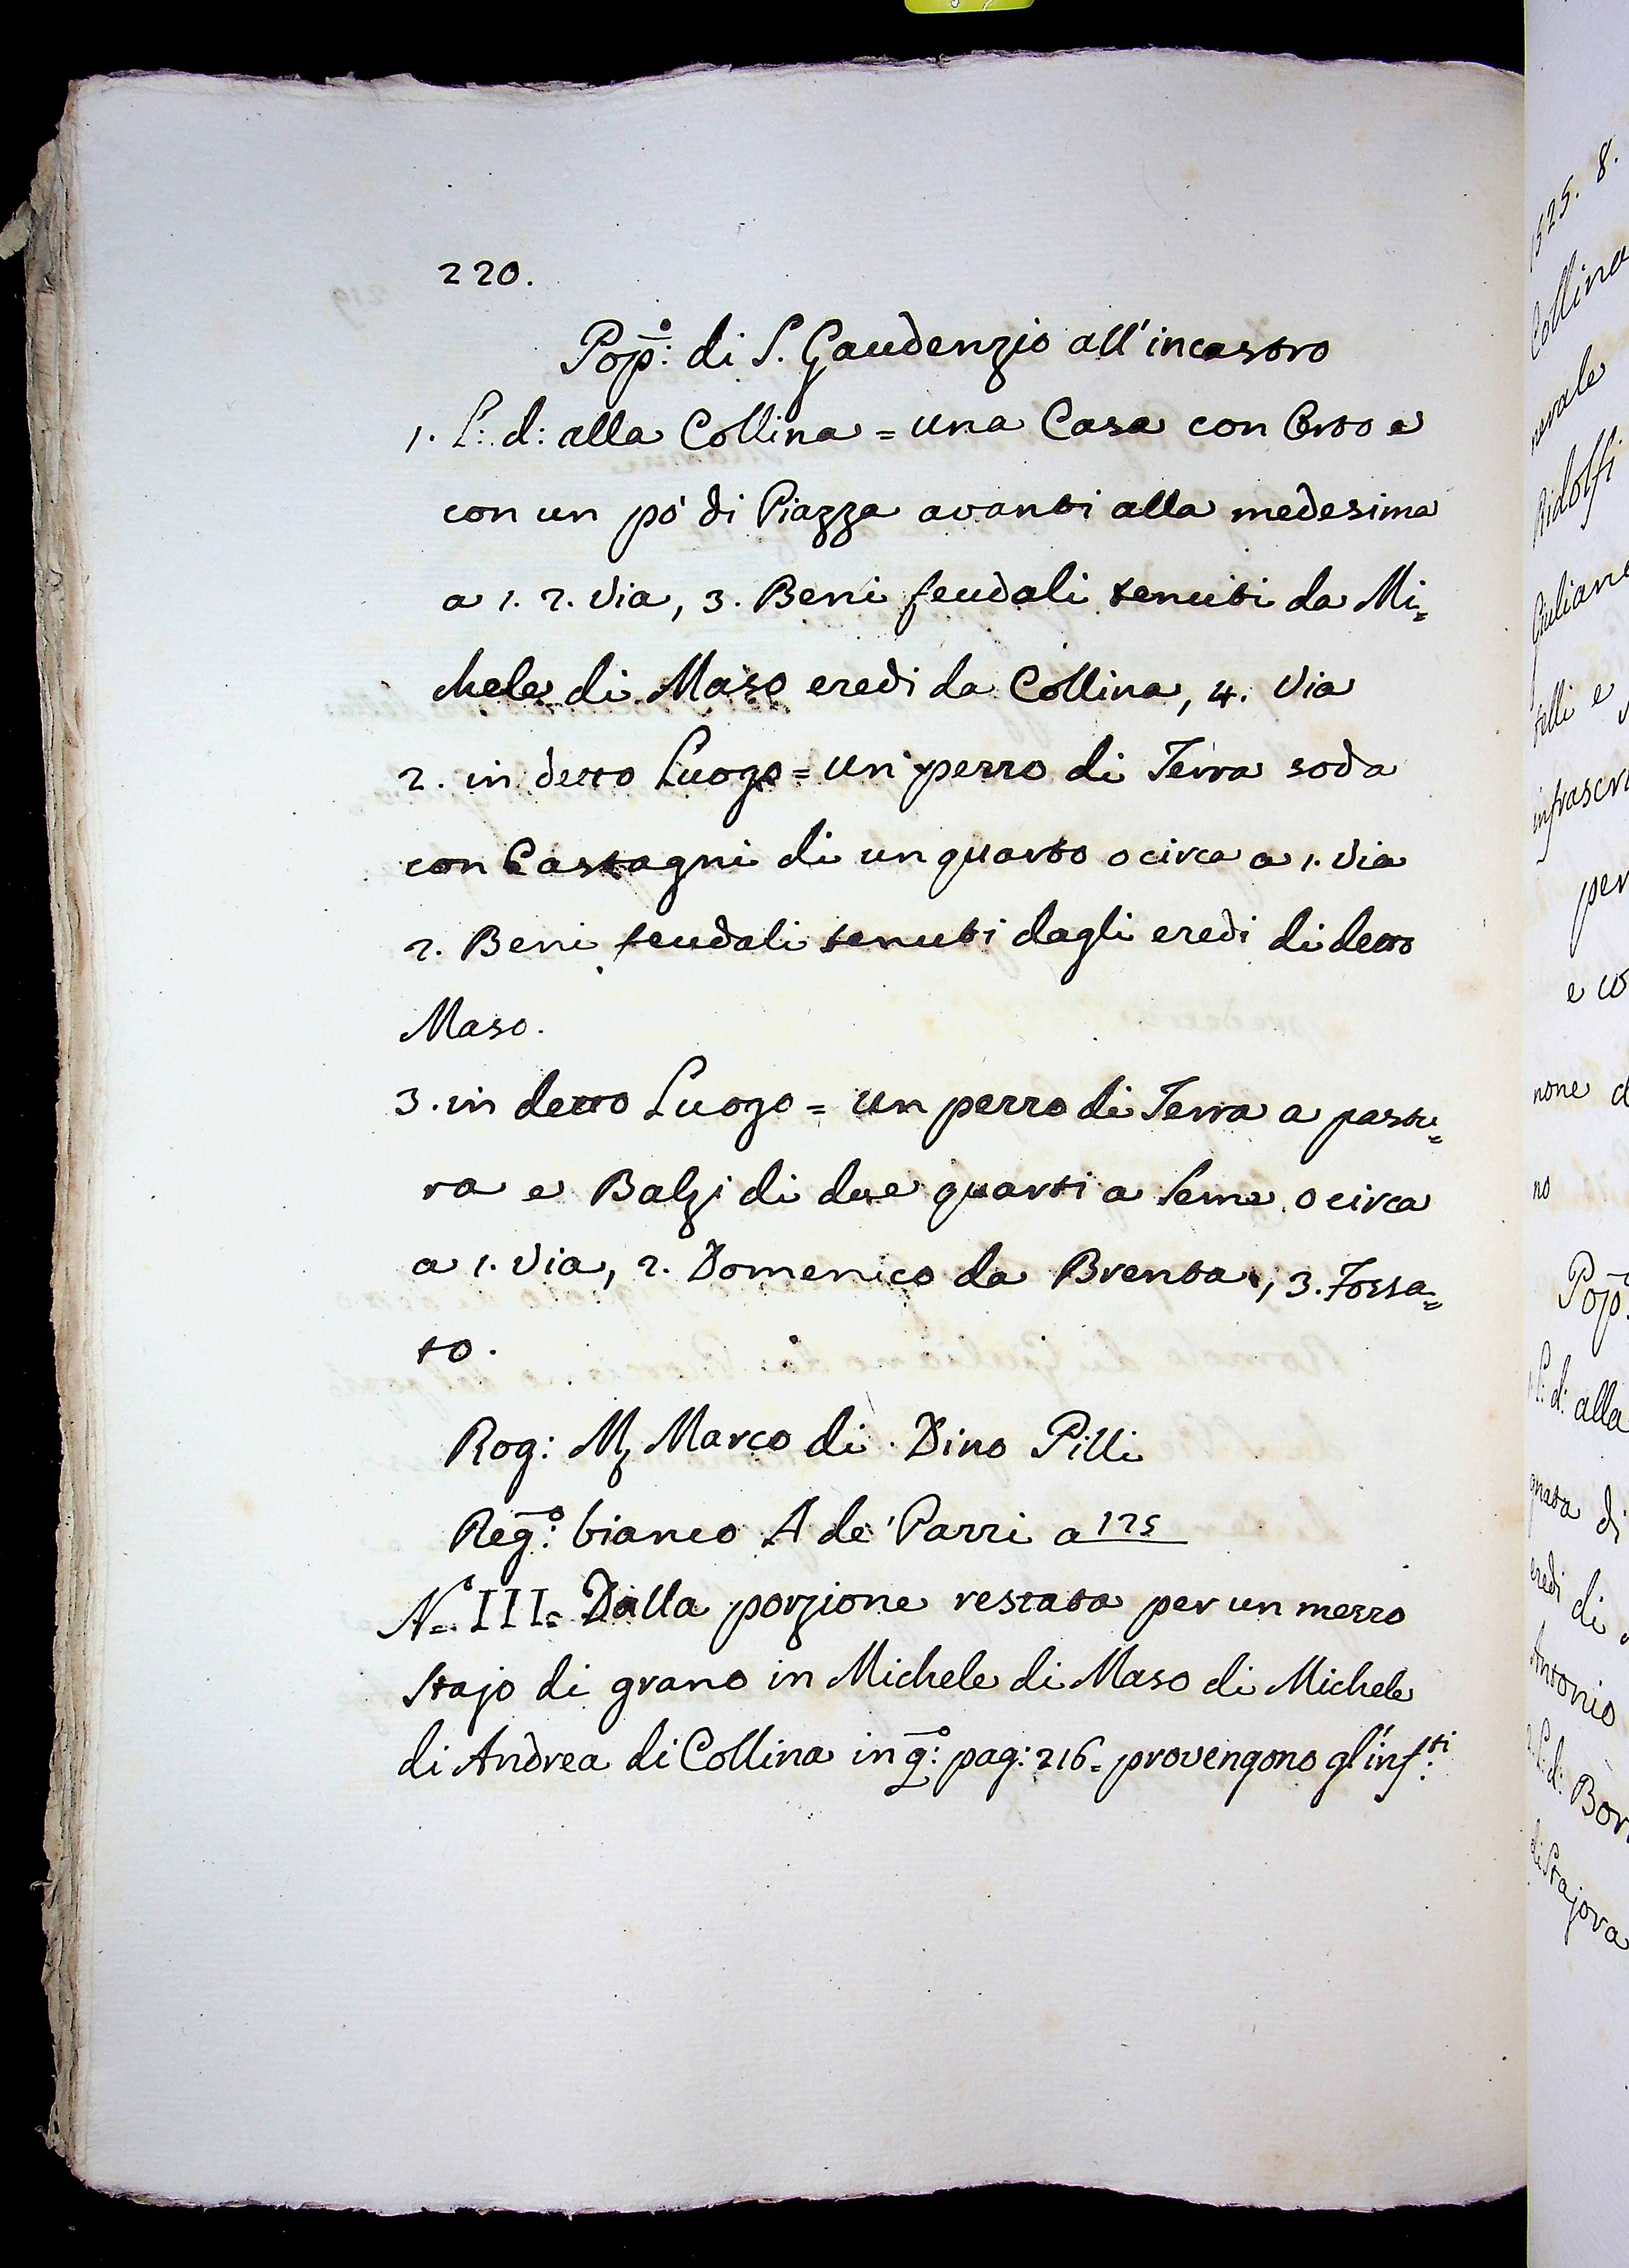 220.
Pop:º di S. Gaudenzio all'incastro
1. L: d: alla Collina = una Casa con Orto e
con un pò di Piazza avanti alla medesima
a 1. 2. Via, 3. Beni feudali tenuti da Mi=
chele di Maso eredi da Collina, 4. Via
2. in detto Luogo = un pezzo di Terra soda
con Castagni di un quarto o circa a 1. Via
2. Beni feudali tenuti dagli eredi di detto
Maso.
3. in detto Luogo = un pezzo di Terra a pastu=
ra e Balzi di due quarti a Seme o circa
a 1. Via, 2. Domenico da Brenta, 3. Fossa=
to.
Rog: M, Marco di Dino Pilli
Reg:º bianco A de' Pazzi a 125
N.º III = Dalla porzione restata per un mezzo
Stajo di grano in Michele di Maso di Michele
di Andrea di Collina in q:º pag: 216 = provengono gl'inf:ti
1525. 8.
Collina
Ridolfi
Giuliano
telli e
infrascri
per
e co
none d
no
Pop:
L: d: alla
gnata di
eredi di
Antonio
L: d: Bor
di Stajora